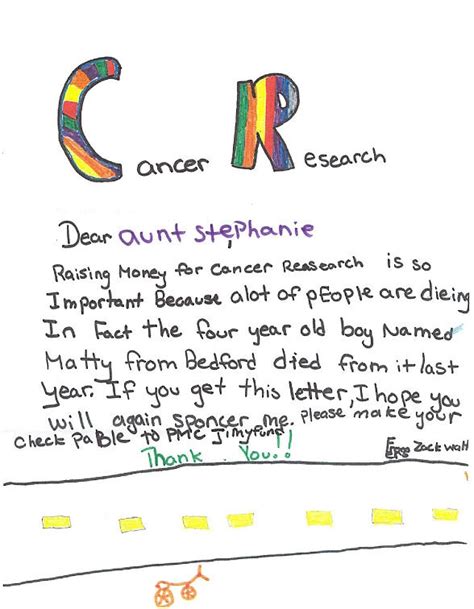 Cancer Research
Dear aunt stephanie
Raising Money for Cancer Reasearch is so
Important Because alot of pEople are dieing
In Fact the four year old boy Named
Matty from Bedford died from it last
year. If you get this letter, I hope you
will again sponcer me. please make your
check paBle to PMC Jimyfund
Thank You!!
Zack wall